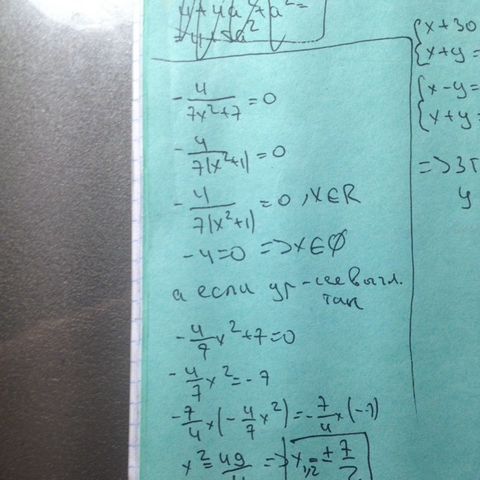 4+4a+a²=
- 4/(7x²+7) = 0
- 4/(7(x²+1)) = 0
- 4/(7(x²+1)) = 0, x∈R
-4=0 => x∈∅
а если ур-ие выгл.
так
- 4/7 x² + 7 = 0
- 4/7 x² = -7
- 7/4 × (- 4/7 x²) = - 7/4 × (-7)
x² = 49/4 => x₁,₂ = ± 7/2
{x+30
{x+y=
{x-y=
{x+y=
=> 3
y